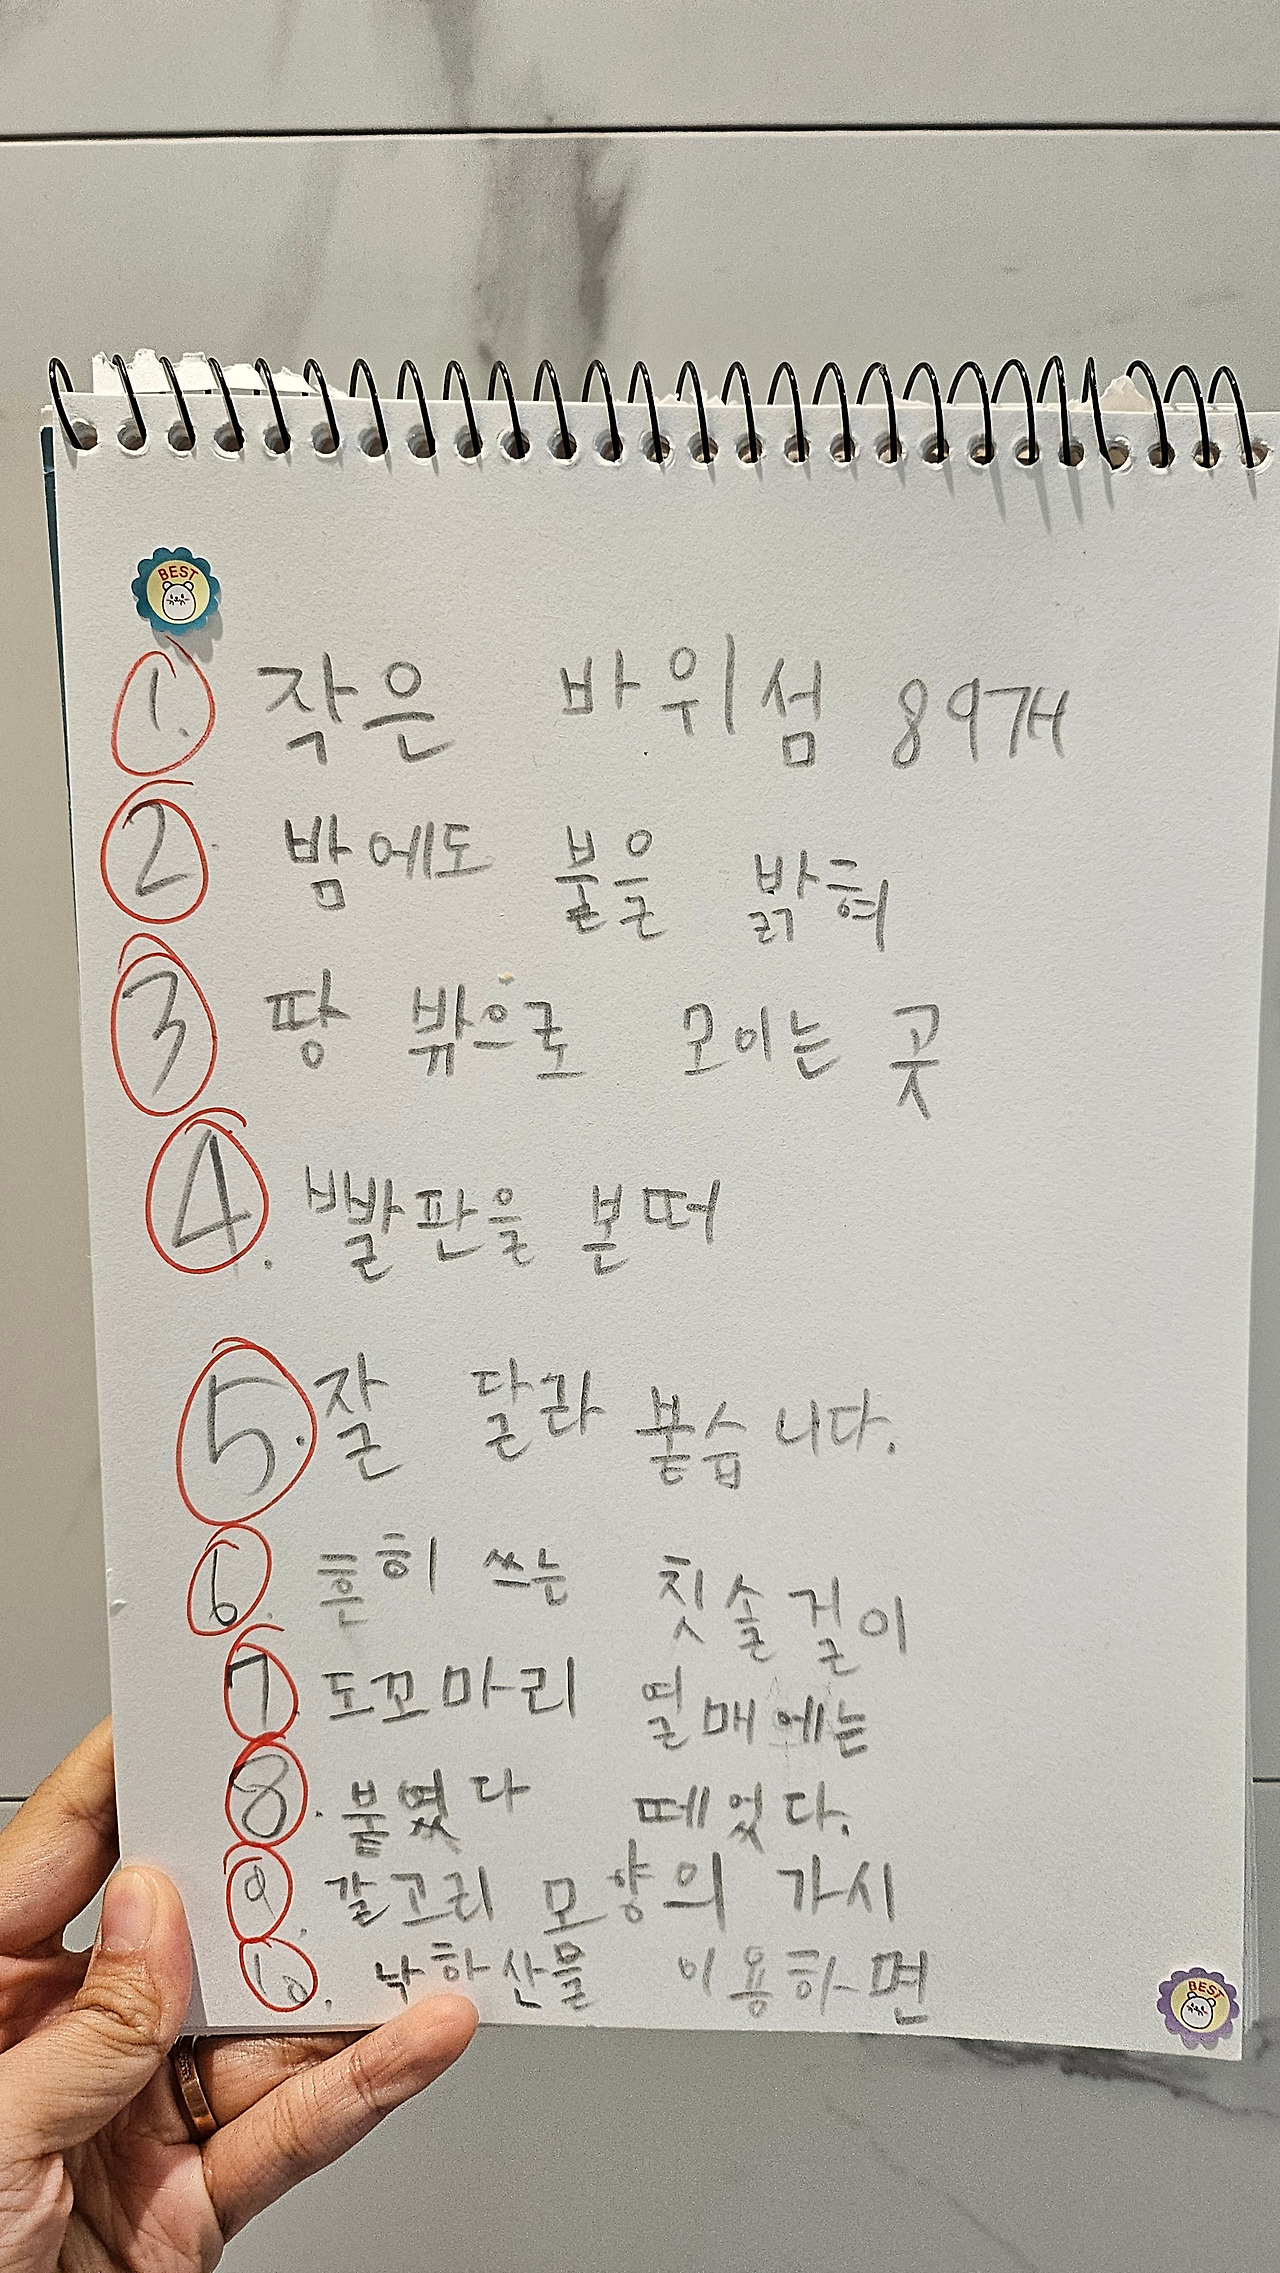 BEST
1. 작은 바위섬 89개
2 밤에도 불을 밝혀
3 땅 밖으로 모이는 곳
4. 빨판을 본떠
5. 잘 달라붙습니다.
6. 흔히 쓰는 칫솔걸이
7 도꼬마리 열매에는
8. 붙였다 떼었다.
9. 갈고리 모양의 가시
10. 낙하산을 이용하면
BEST